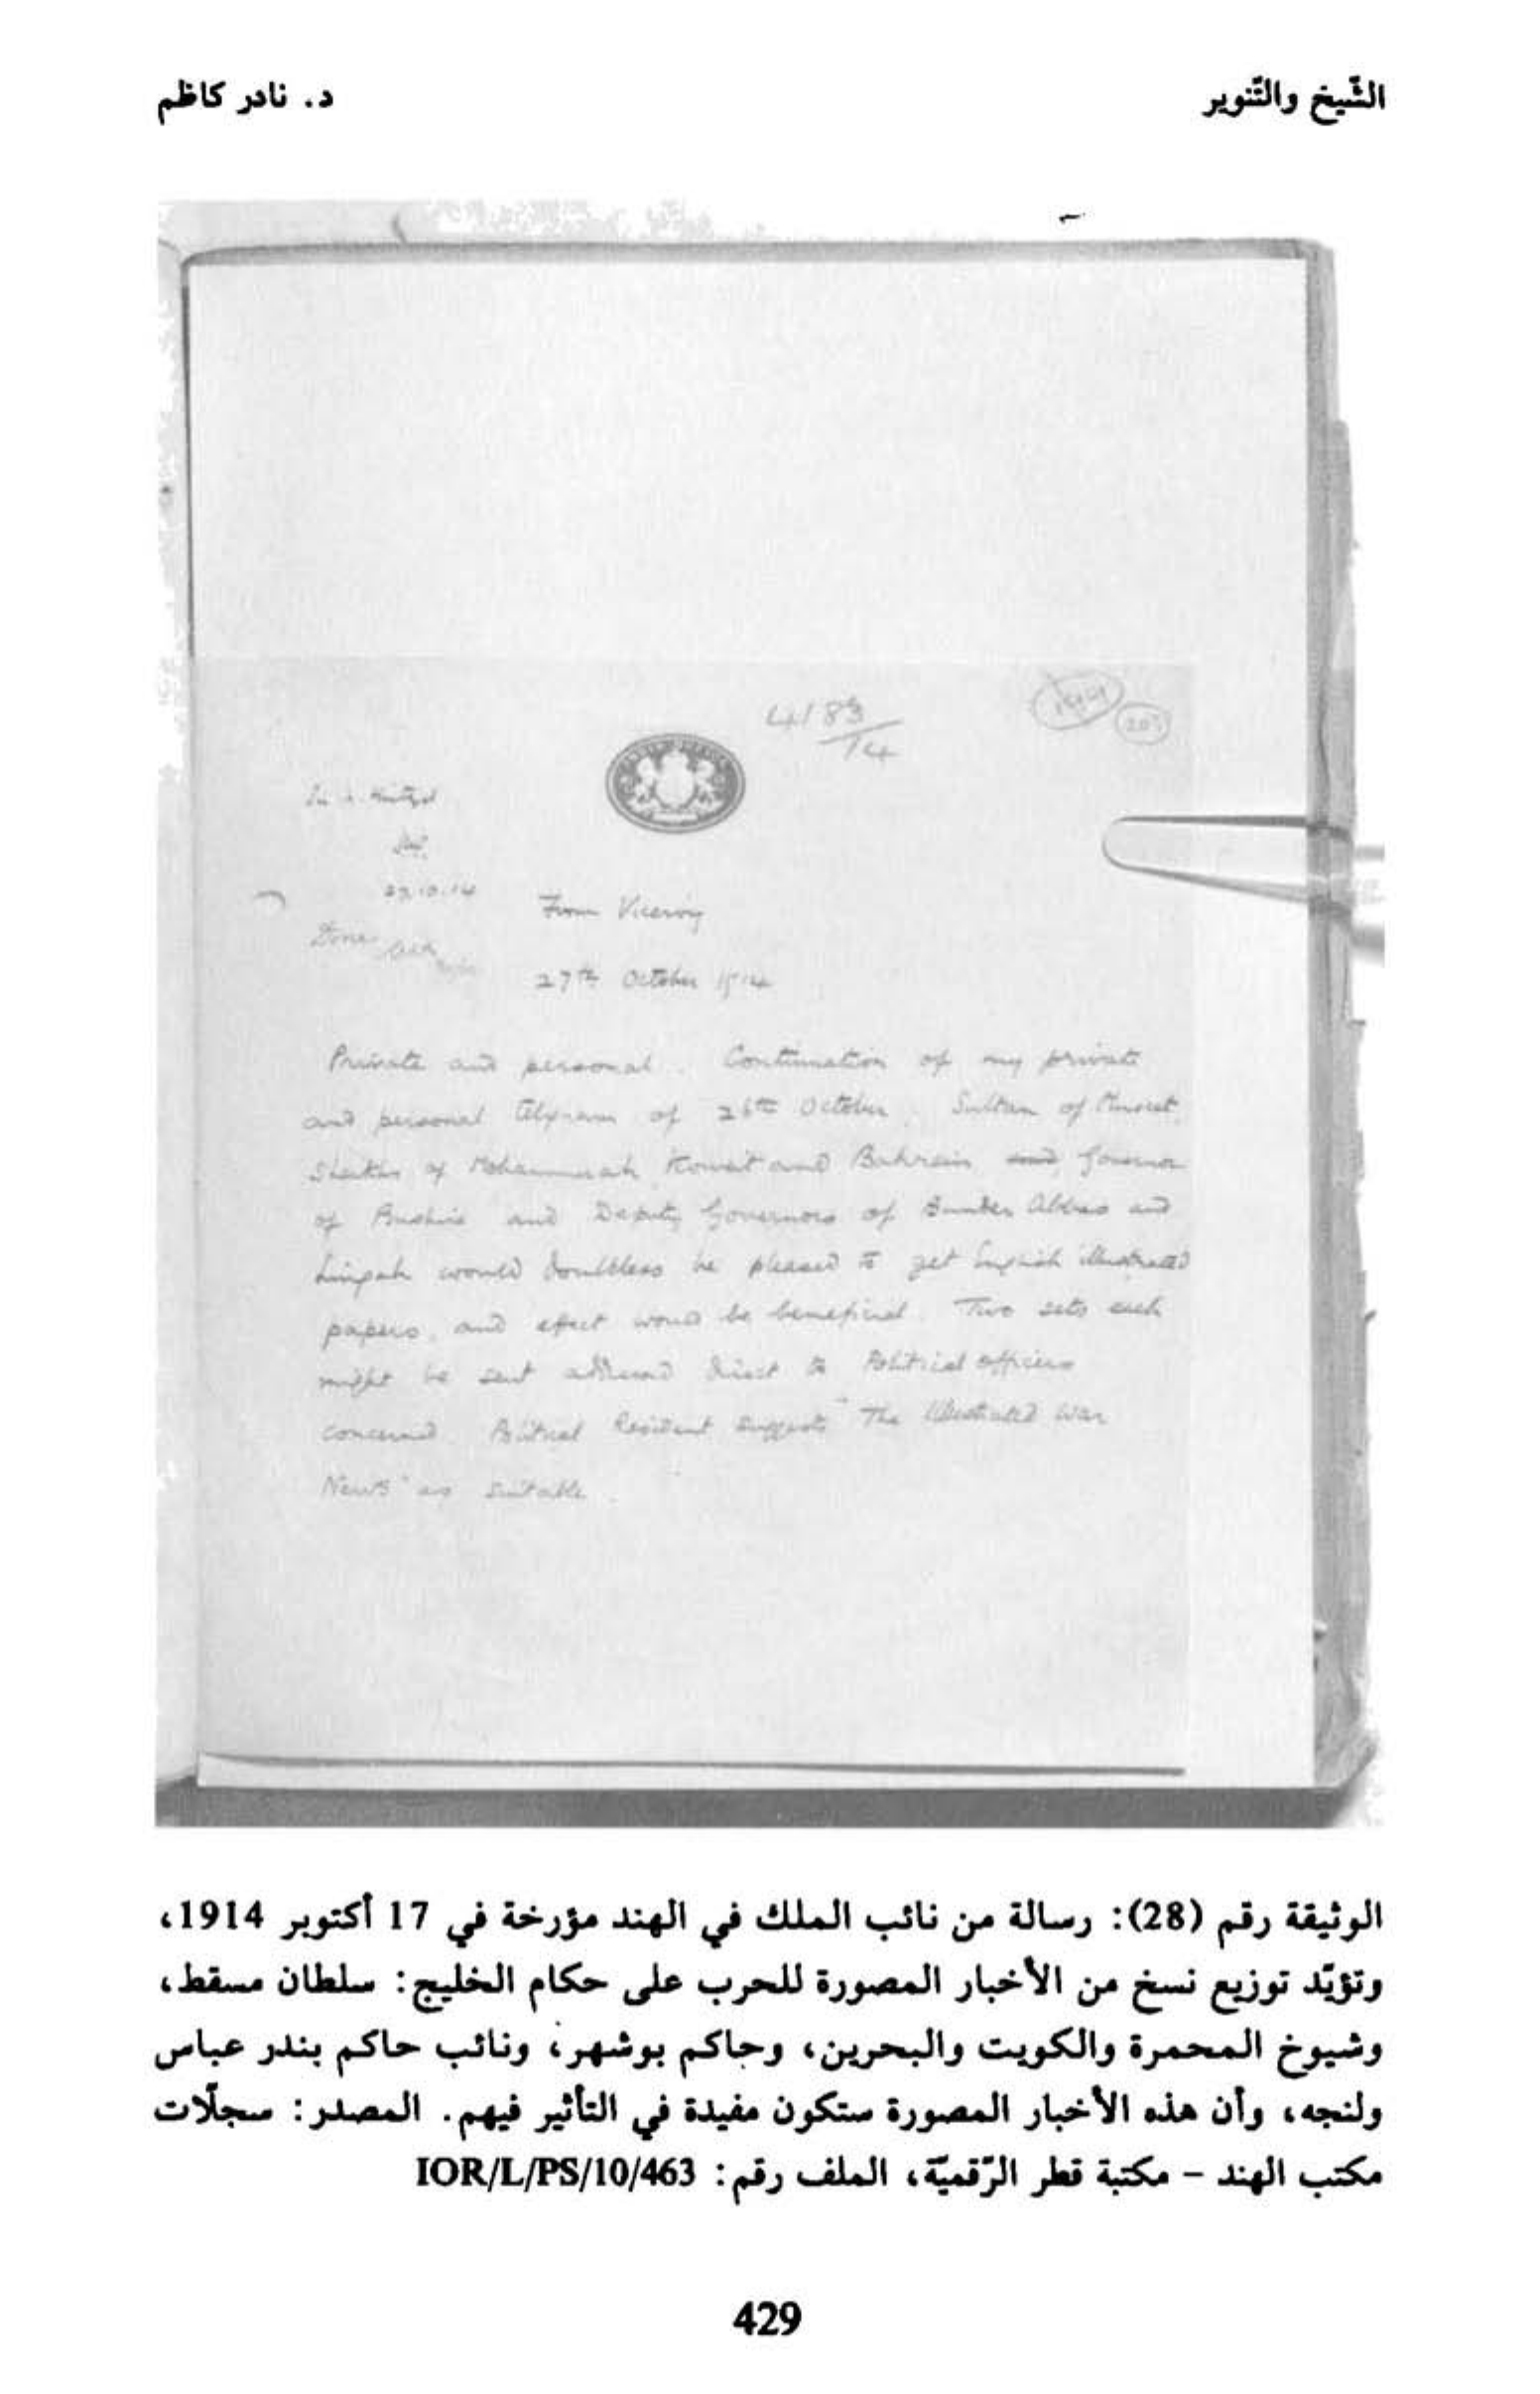 الشّيخ والتّنوير
د. نادر كاظم
4183/14
27.10.14
Done
From Viceroy
27th October 1914
Private and personal. Continuation of my private
and personal telegram of 26th October. Sultan of Muscat,
Sheikhs of Mohammerah, Koweit and Bahrein and Governor
of Bushire and Deputy Governors of Bunder Abbas and
Lingah would doubtless be pleased to get English illustrated
papers, and effect would be beneficial. Two sets each
might be sent addressed direct to Political officers
concerned. Political Resident suggests "The Illustrated War
News" as suitable.
الوثيقة رقم (28): رسالة من نائب الملك في الهند مؤرخة في 17 أكتوبر 1914،
وتؤيّد توزيع نسخ من الأخبار المصورة للحرب على حكام الخليج: سلطان مسقط،
وشيوخ المحمرة والكويت والبحرين، وحاكم بوشهر، ونائب حاكم بندر عباس
ولنجه، وأن هذه الأخبار المصورة ستكون مفيدة في التأثير فيهم. المصدر: سجلّات
مكتب الهند - مكتبة قطر الرّقميّة، الملف رقم: IOR/L/PS/10/463
429